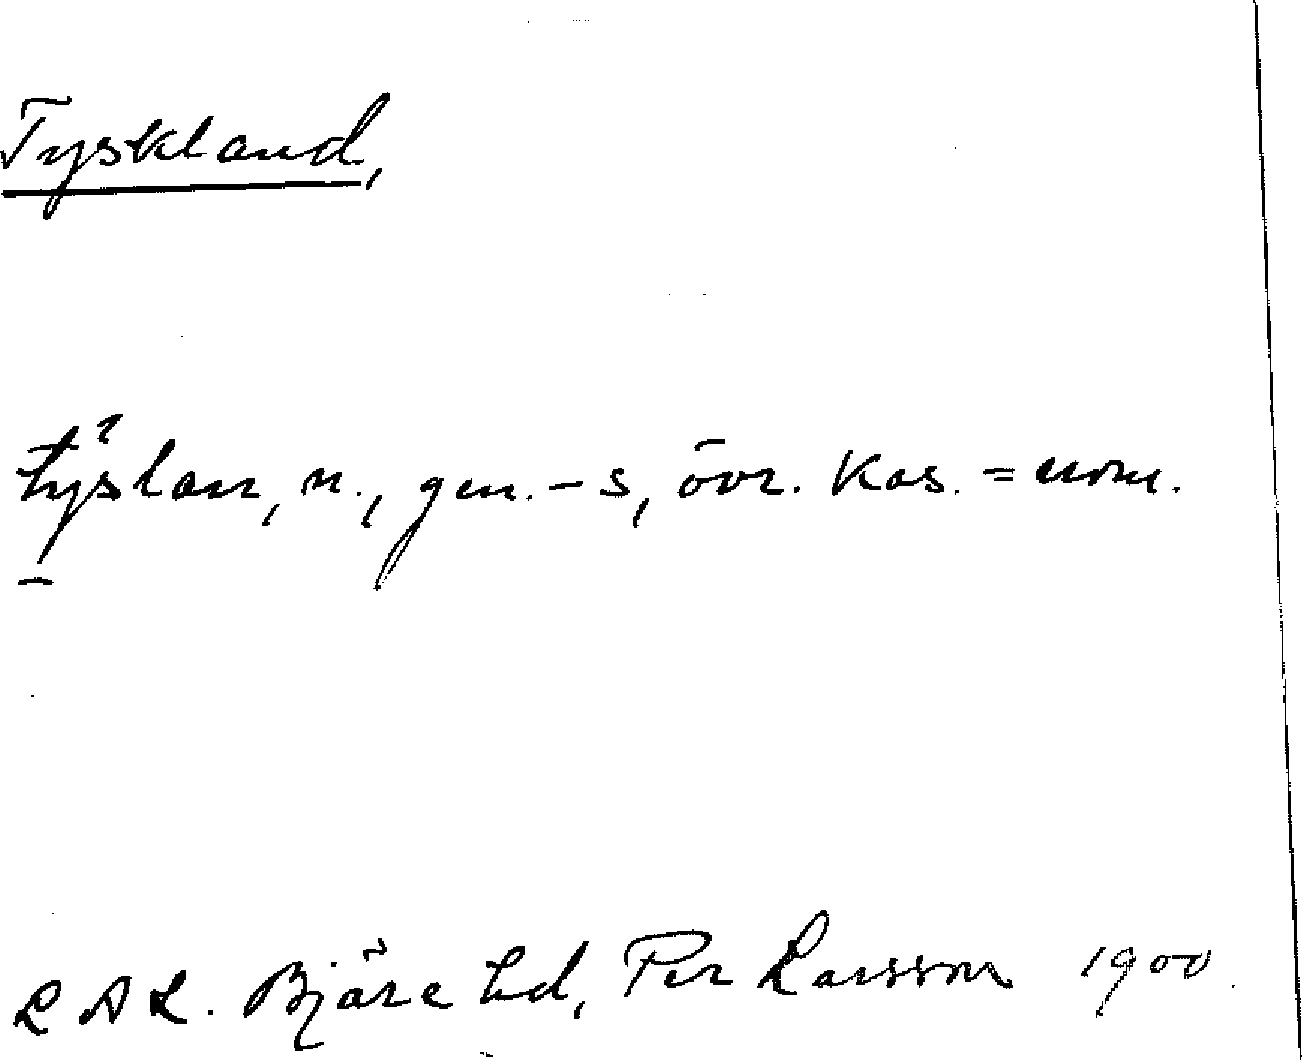 Tyskland,
tyslan, n., gen. -s, övr. kas. = nom.
LAL. Bjäre hd, Per Larsson 1900.